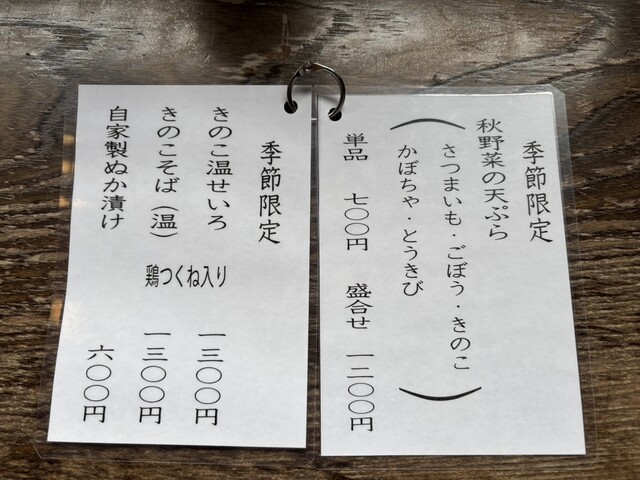 季節限定
秋野菜の天ぷら
(さつまいも・ごぼう・きのこ
かぼちゃ・とうきび)
単品 七〇〇円 盛合せ 一二〇〇円
季節限定
きのこ温せいろ 一三〇〇円
鶏つくね入り
きのこそば(温) 一三〇〇円
自家製ぬか漬け 六〇〇円